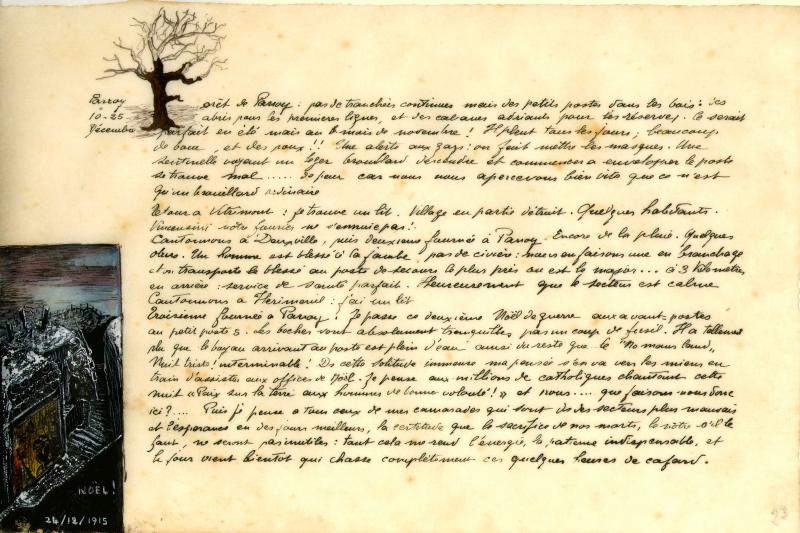 Parroy
10-25
décembre
orêt de Parroy : pas de tranchées continues mais des petits postes dans les bois : des
abris pour les premières lignes, et des cabanes abriants pour les réserves. Ce serait
parfait en été mais au mois de novembre ! Il pleut tous les jours ; beaucoup
de boue, et des poux !! Une alerte aux gaz : on fait mettre les masques. Une
sentinelle voyant un léger brouillard descendre et commencer a envelopper le poste
se trouve mal ..... de peur car nous nous apercevons bien vite que ce n'est
qu'un brouillard ordinaire
Retour a Vitrimont : je trouve un lit. Village en partie détruit. Quelques habitants.
Vincensini notre fourrier ne s'ennuie pas !
Cantonnons à Deuxville, puis deuxième journée à Parroy. Encore de la pluie. Quelques
obus. Un homme est blessé à la jambe, pas de civière : nous en faisons une en branchage
et on transporte le blessé au poste de secours le plus près ou est le major ... à 3 kilomètres
en arrière : service de santé parfait. Heureusement que le secteur est calme
Cantonnons a Hériménil : j'ai un lit
Troisième journée a Parroy ! Je passe ce deuxième Noël de guerre aux avant-postes
au petit poste 5. Les boches sont absolument tranquilles, pas un coup de fusil. Il a tellement
plu que le boyau arrivant au poste est plein d'eau ainsi du reste que le "No mans land",
Nuit triste ! interminable ! De cette solitude immense ma pensée s'en va vers les miens en
train d'assister aux offices de Noël. Je pense aux millions de catholiques chantant cette
nuit « Paix sur la terre aux hommes de bonne volonté ! » et nous .... que faisons-nous donc
ici ? .... Puis je pense a tous ceux de mes camarades qui sont ds des secteurs plus mauvais
et l'espérance en des jours meilleurs, la certitude que le sacrifice de nos morts, le nôtre s'il le
faut, ne seront pas inutiles : tout cela me rend l'énergie, la patience indispensable, et
le jour vient bientôt qui chasse complètement ces quelques heures de cafard.
NOËL !
24/12/1915
23